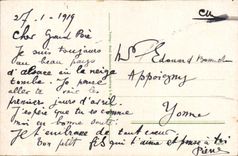 27-1-1919
Cher Grand Père
Je suis toujours
au beau pays
d'alsace où la neige
tombe. Je pense
aller te voir les
premiers jours d'avril.
J'espère que tu es comme
moi en bonne santé.
Je t'embrasse de tout cœur.
Ton petit fils qui t'aime et pense à toi
Pierre
Mr Edouard
Appoigny
Yonne